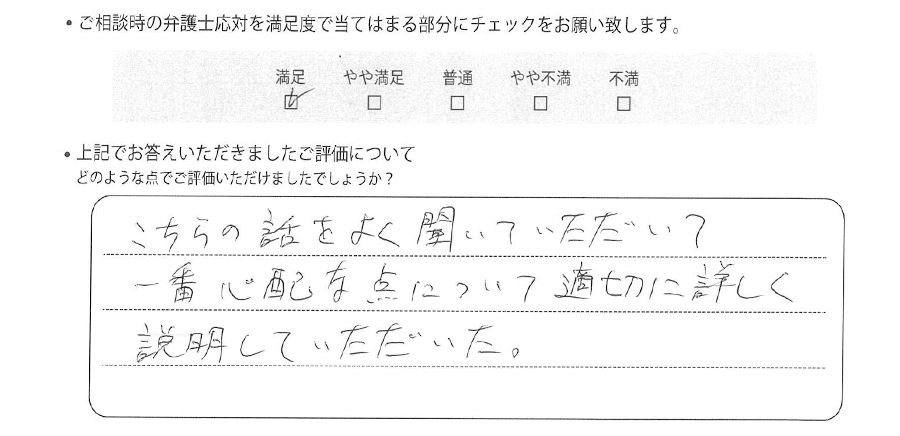 • ご相談時の弁護士応対を満足度で当てはまる部分にチェックをお願い致します。
満足 やや満足 普通 やや不満 不満
☑ ☐ ☐ ☐ ☐
• 上記でお答えいただきましたご評価について
どのような点でご評価いただけましたでしょうか？
こちらの話をよく聞いていただいて
一番心配な点について適切に詳しく
説明していただいた。